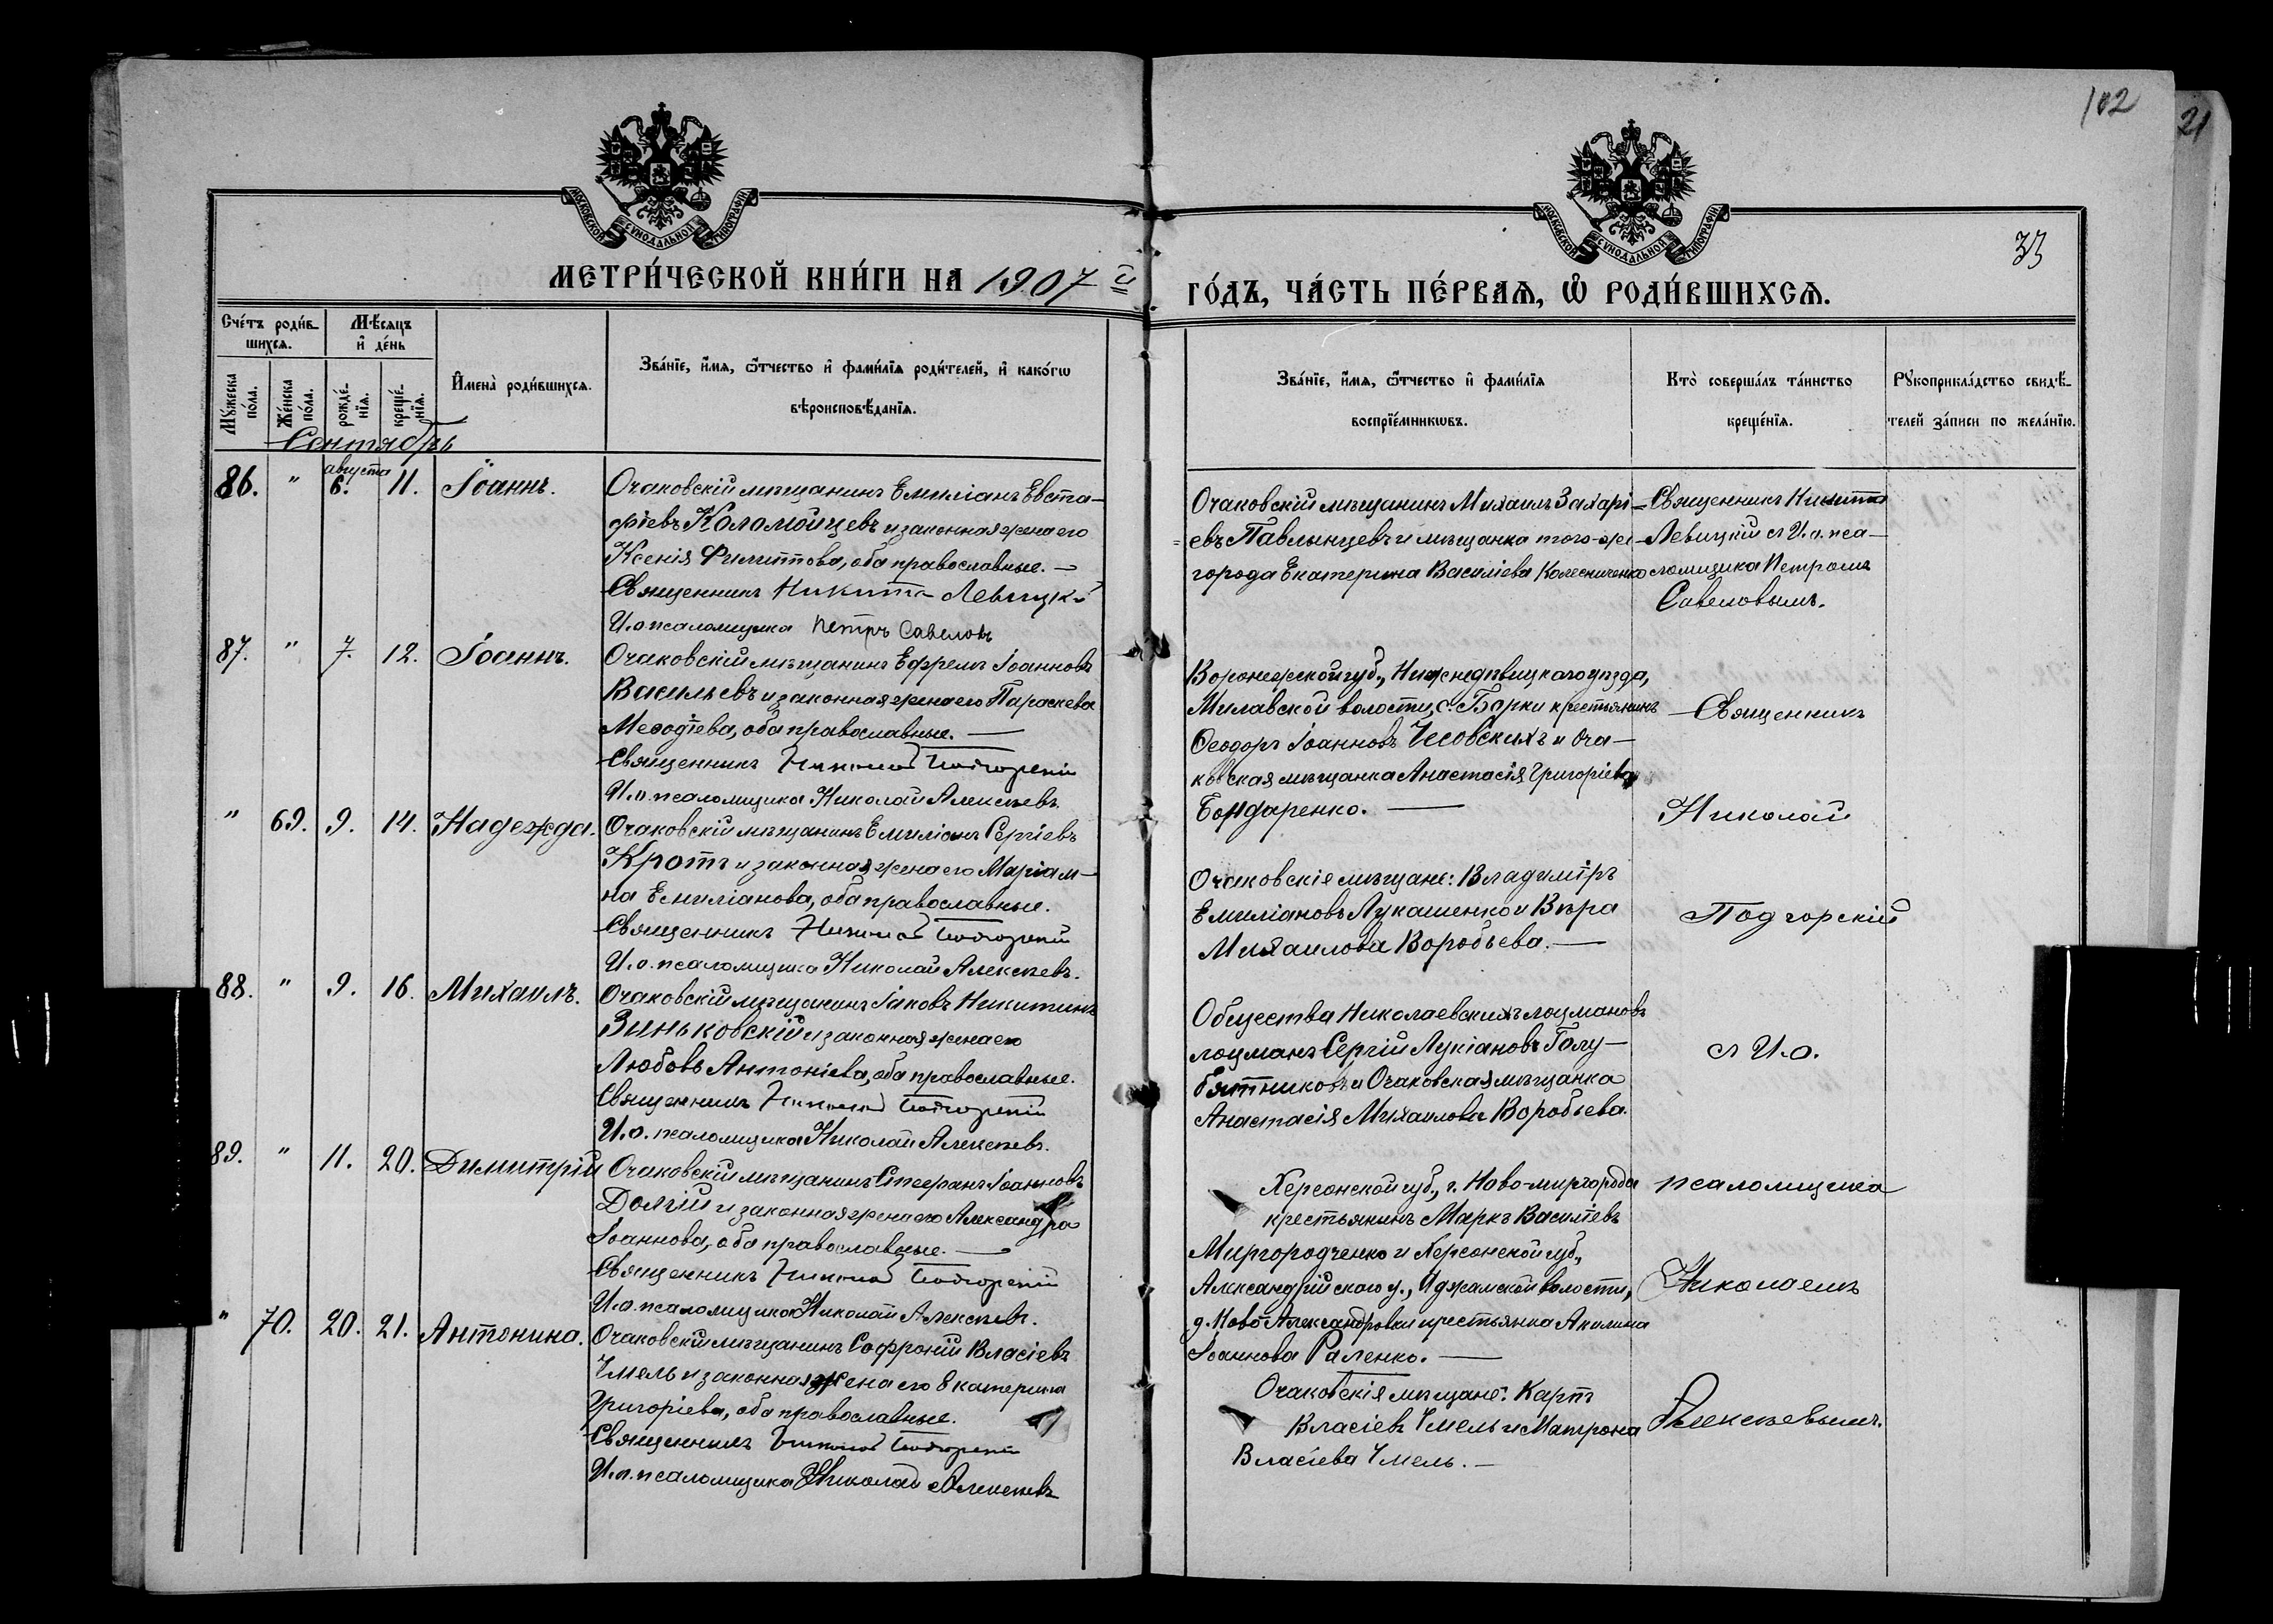 102
21
33
МОСКОВСКОЙ СУНОДАЛЬНОЙ ТИПОГРАФІИ
МОСКОВСКОЙ СУНОДАЛЬНОЙ ТИПОГРАФІИ
МЕТРИ́ЧЕСКОЙ КНИ́ГИ НА 1907 й
ГО́ДЪ, ЧА́СТЬ ПЕ́РВАѦ, Ѽ РОДИ́ВШИХСѦ.
Сче́тъ роди́вшихсѧ.
Мѣ́сѧцъ и҆ де́нь
Мꙋ́жеска по́ла.
Же́нска по́ла.
рожде́нїѧ.
креще́нїѧ.
И҆мена̀ роди́вшихсѧ.
Зва́нїе, и҆́мѧ, ѻ҆́тчество и҆ фами́лїѧ роди́телей, и҆ како́гѡ
вѣроисповѣ́данїѧ.
Зва́нїе, и҆́мѧ, ѻ҆́тчество и҆ фами́лїѧ
воспрїе́мникѡвъ.
Кто̀ соверша́лъ та́инство
креще́нїѧ.
Рꙋкоприкла́дство свидѣ́-
телей за́писи по жела́нїю.
Сентябрь
86. " августа 6. 11. Іоаннъ.
Очаковскій мѣщанинъ Емиліанъ Евста-
фіевъ Коломойцевъ и законная жена его
Ксенія Филиппова, оба православные. —
Священникъ Никита Левицкій
И. о псаломщика Петръ Савеловъ
Очаковскій мѣщанинъ Михаилъ Захарі-
евъ Павлынцевъ и мѣщанка того-же
города Екатерина Василіева Колесниченко
Священникъ Никита
Левицкій съ И. о. пса-
ломщика Петромъ
Савеловымъ.
87. " 7. 12. Іоаннъ.
Очаковскій мѣщанинъ Ефремъ Іоанновъ
Васильевъ и законная жена его Параскева
Меѳодіева, оба православные. —
Священникъ Николай Подгорскій
И. о. псаломщика Николай Алексѣевъ.
Воронежской губ., Нижнедѣвицкаго уѣзда,
Милавской волости, с. Борки крестьянинъ
Ѳеодоръ Іоанновъ Чесовскихъ и Оча-
ковская мѣщанка Анастасія Григоріева
Бондаренко. —
" 69. 9. 14. Надежда.
Очаковскій мѣщанинъ Емиліанъ Сергіевъ
Кротъ и законная жена его Маріам-
на Емиліанова, оба православные.
Священникъ Николай Подгорскій
И. о. псаломщика Николай Алексѣевъ.
Очаковскіе мѣщане: Владиміръ
Емиліановъ Лукашенко и Вѣра
Михаилова Воробьева. —
88. " 9. 16. Михаилъ.
Очаковскій мѣщанинъ Іаковъ Никитинъ
Виньковскій и законная жена его
Любовь Антоніева, оба православные.
Священникъ Николай Подгорскій
И. о. псаломщика Николай Алексѣевъ.
Общества Николаевскихъ лоцмановъ
лоцманъ Сергій Лукіановъ Голу-
бятниковъ и Очаковская мѣщанка
Анастасія Михаилова Воробьева.
89. " 11. 20. Димитрій
Очаковскій мѣщанинъ Стефанъ Іоанновъ
Долгій и законная жена его Александра
Іоаннова, оба православные. —
Священникъ Николай Подгорскій
И. о. псаломщика Николай Алексѣевъ.
Херсонской губ., г. Ново-миргорода
крестьянинъ Маркъ Василіевъ
Миргородченко и Херсонской губ.,
Александрійского у., Аджамской волости,
д. Ново Александровки крестьянка Акилина
Іоаннова Раленко. —
" 70. 20. 21. Антонина.
Очаковскій мѣщанинъ Софроній Власіевъ
Чмель и законная жена его Екатерина
Григоріева, оба православные.
Священникъ Николай Подгорскій
И. о. псаломщика Николай Алексѣевъ
Очаковскія мѣщане: Карпъ
Власіевъ Чмель и Матрона
Власіева Чмель. —
Священникъ
Николай
Подгорскій
съ И. о.
псаломщика
Николаемъ
Алексѣевымъ.